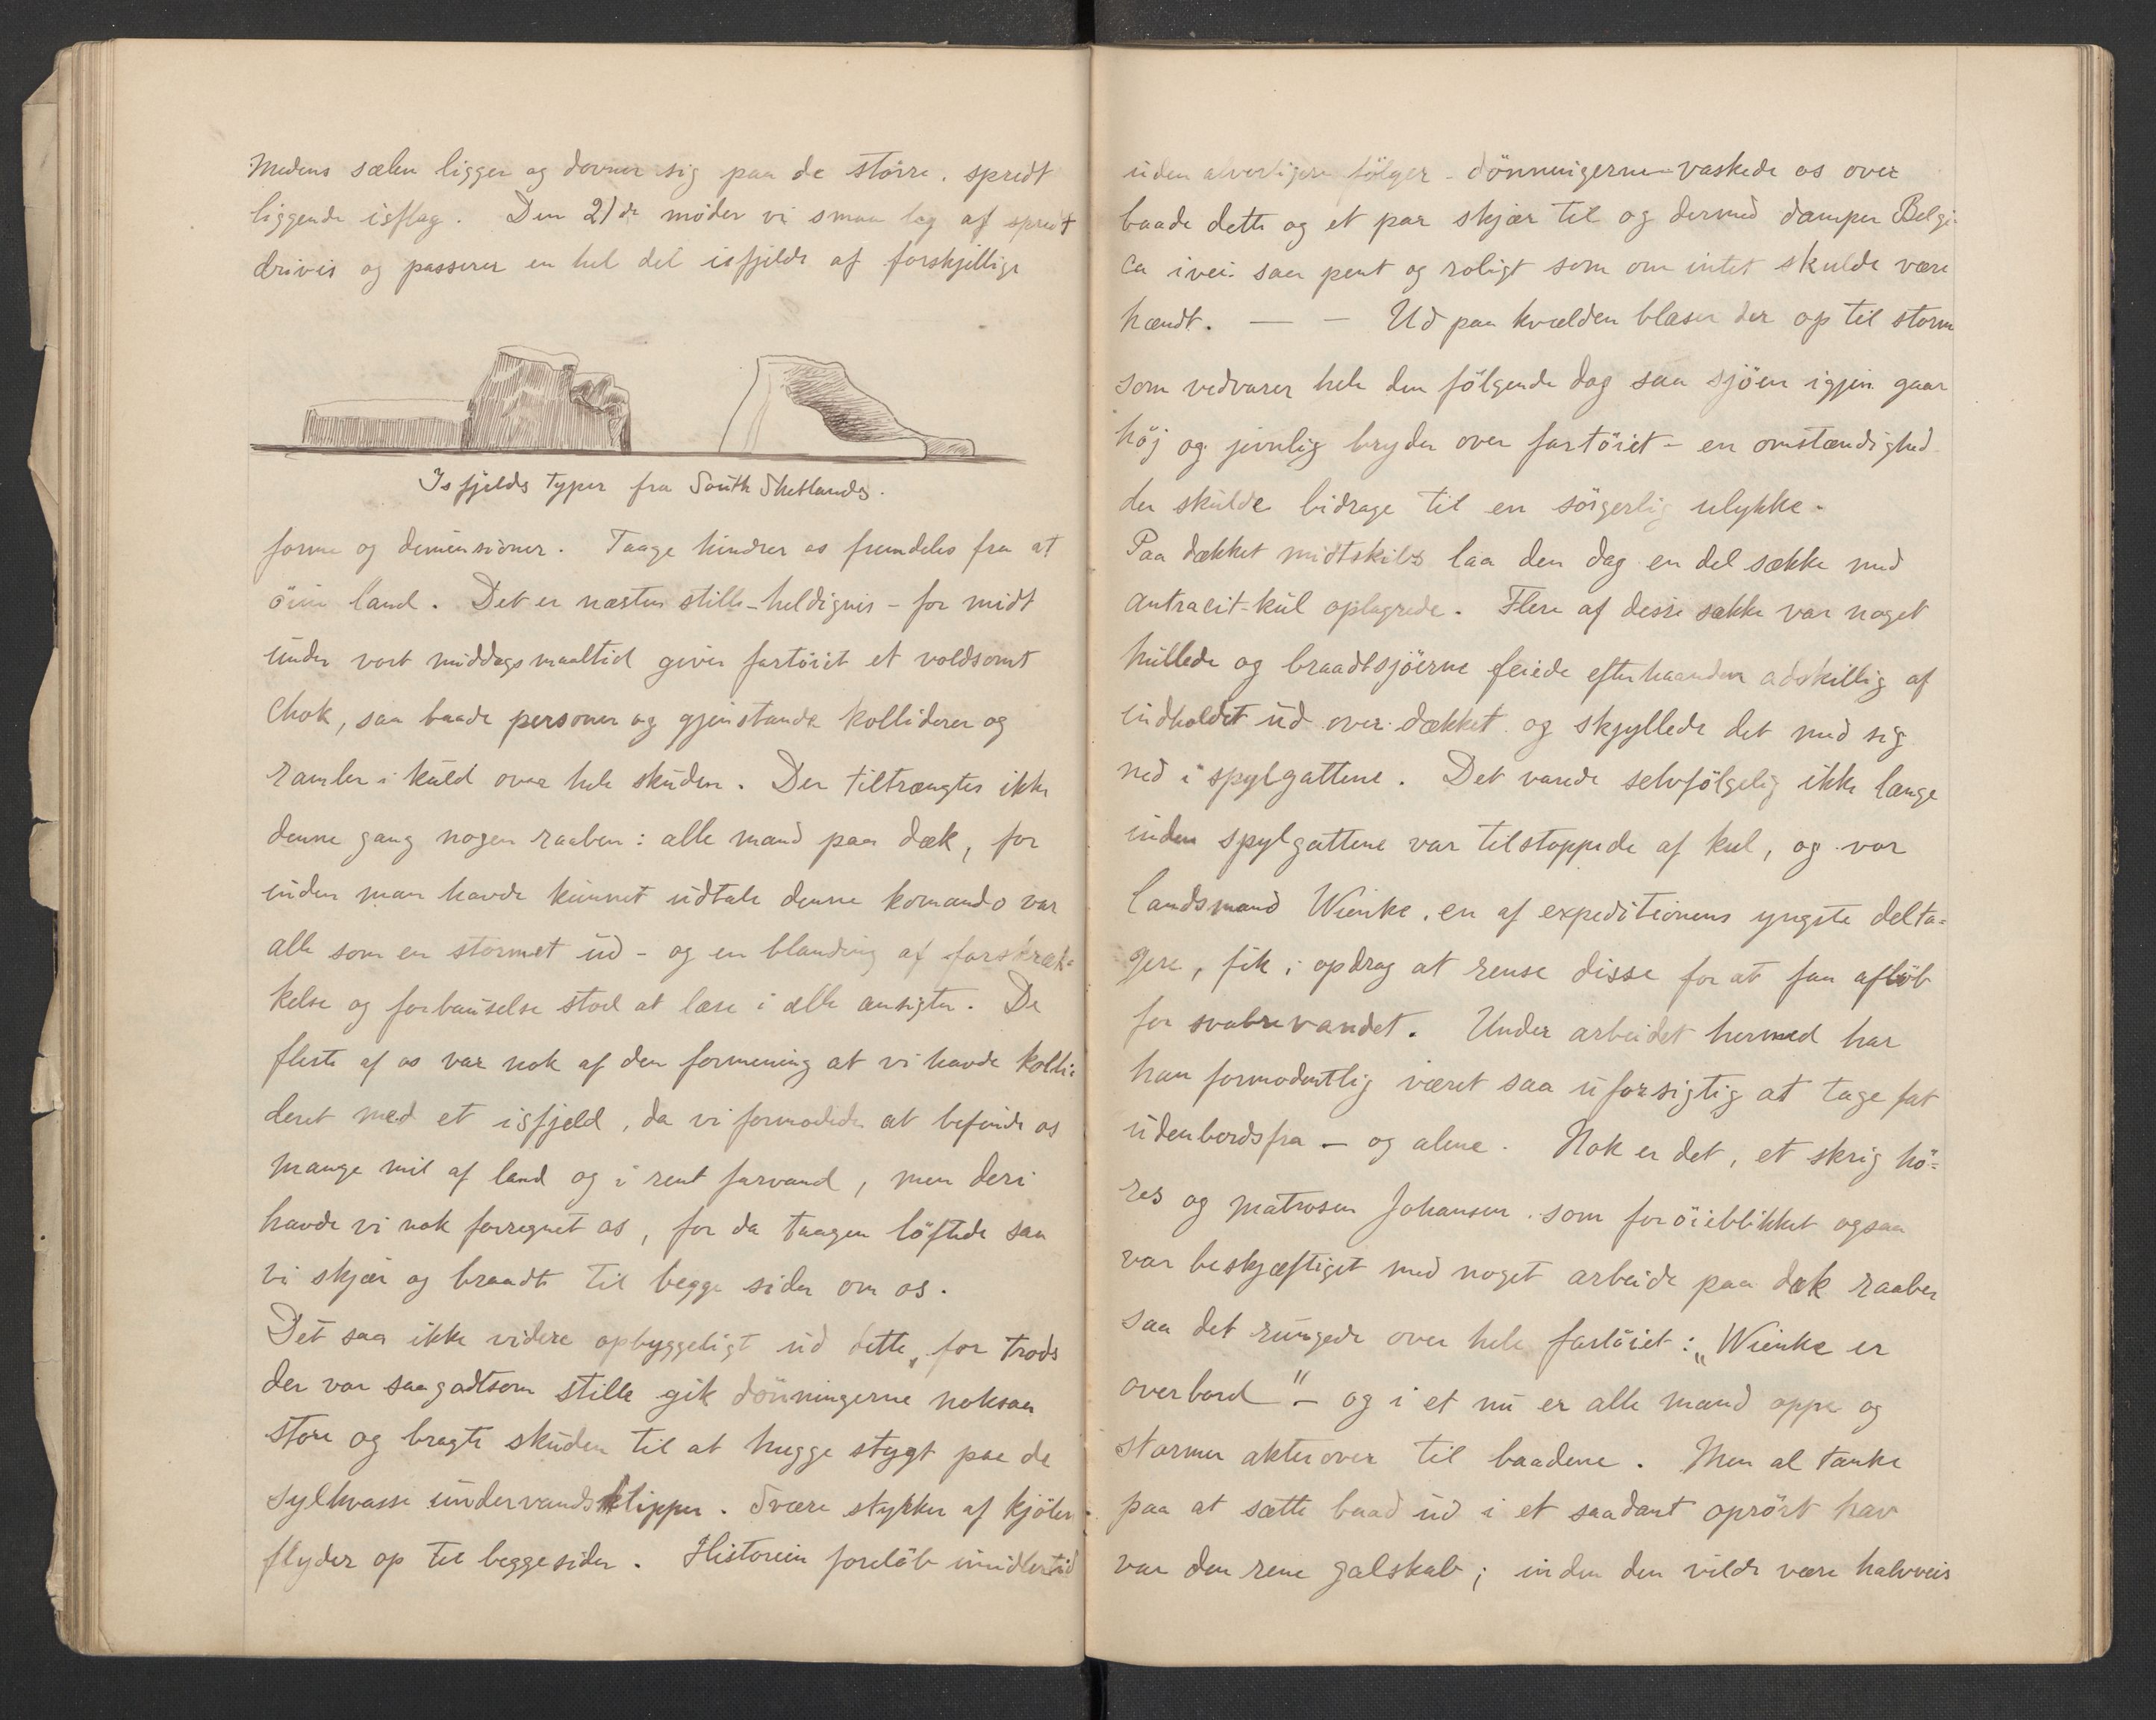 Medens sælen ligger og dovner sig paa de större, spredt
liggende isflag. Den 21de möder vi smaa lag af spredt
drivis og passerer en hel del isfjelde af forskjellige
Isfjelds typer fra South Shetlands.
forme og dimensioner. Taage hindrer os fremdeles fra at
öine land. Det er næsten stille - heldigvis - for midt
under vort middagsmaaltid giver fartöiet et voldsomt
chok, saa baade personer og gjenstande kolliderer og
ramler i kuld over hele skuden. Der tiltrængtes ikke
denne gang nogen raaben: alle mand paa dæk, for
inden man havde kunnet udtale denne komando var
alle som en stormet ud - og en blanding af forskræk-
kelse og forbauselse stod at læse i alle ansigter. De
fleste af os var nok af den formening at vi havde kolli-
deret med et isfjeld, da vi formodede at befinde os
mange mil af land og i rent farvand, men deri
havde vi nok forregnet os, for da taagen löftede saa
vi skjær og braadt til begge sider om os.
Det saa ikke videre opbyggeligt ud dette, for trods
der var saagodtsom stille gik dönningerne noksaa
store og bragte skuden til at hugge stygt paa de
sylkvasse undervandsklipper. Svære stykker af kjölen
flyder op til begge sider. Historien forelöb imidlertid
uden alvorligere fölger - dönningerne vaskede os over
baade dette og et par skjær til og dermed damper Belgi-
ca ivei saa pent og roligt som om intet skulde være
hændt. — - Ud paa kvælden blæser der op til storm
som vedvarer hele den fölgende dag saa sjöen igjen gaar
höj og jevnlig bryder over fartöiet - en omstændighed
der skulde bidrage til en sörgerlig ulykke.
Paa dækket midtskibs laa den dag en del sække med
antracit-kul oplagrede. Flere af disse sække var noget
hullede og braadtsjöerne feiede efterhaanden adskillig af
indholdet ud over dækket og skjyllede det med sig
ned i spylgattene. Det varede selvfölgelig ikke længe
inden spylgattene var tilstoppede af kul, og vor
landsmand Wienke, en af expeditionens yngste delta=
gere, fik i opdrag at rense disse for at faa aflöb
for svabrevandet. Under arbeidet hermed har
han formodentlig været saa uforsigtig at tage fat
udenbordsfra - og alene. Nok er det, et skrig hö=
res og matrosen Johansen som for öieblikket ogsaa
var beskjæftiget med noget arbeide paa dæk raaber
saa det rungede over hele fartöiet: „Wienke er
overbord" - og i et nu er alle mand oppe og
stormer akterover til baadene. Men al tanke
paa at sætte baad ud i et saadant oprört hav
var den rene galskab; inden den vilde være halvveis